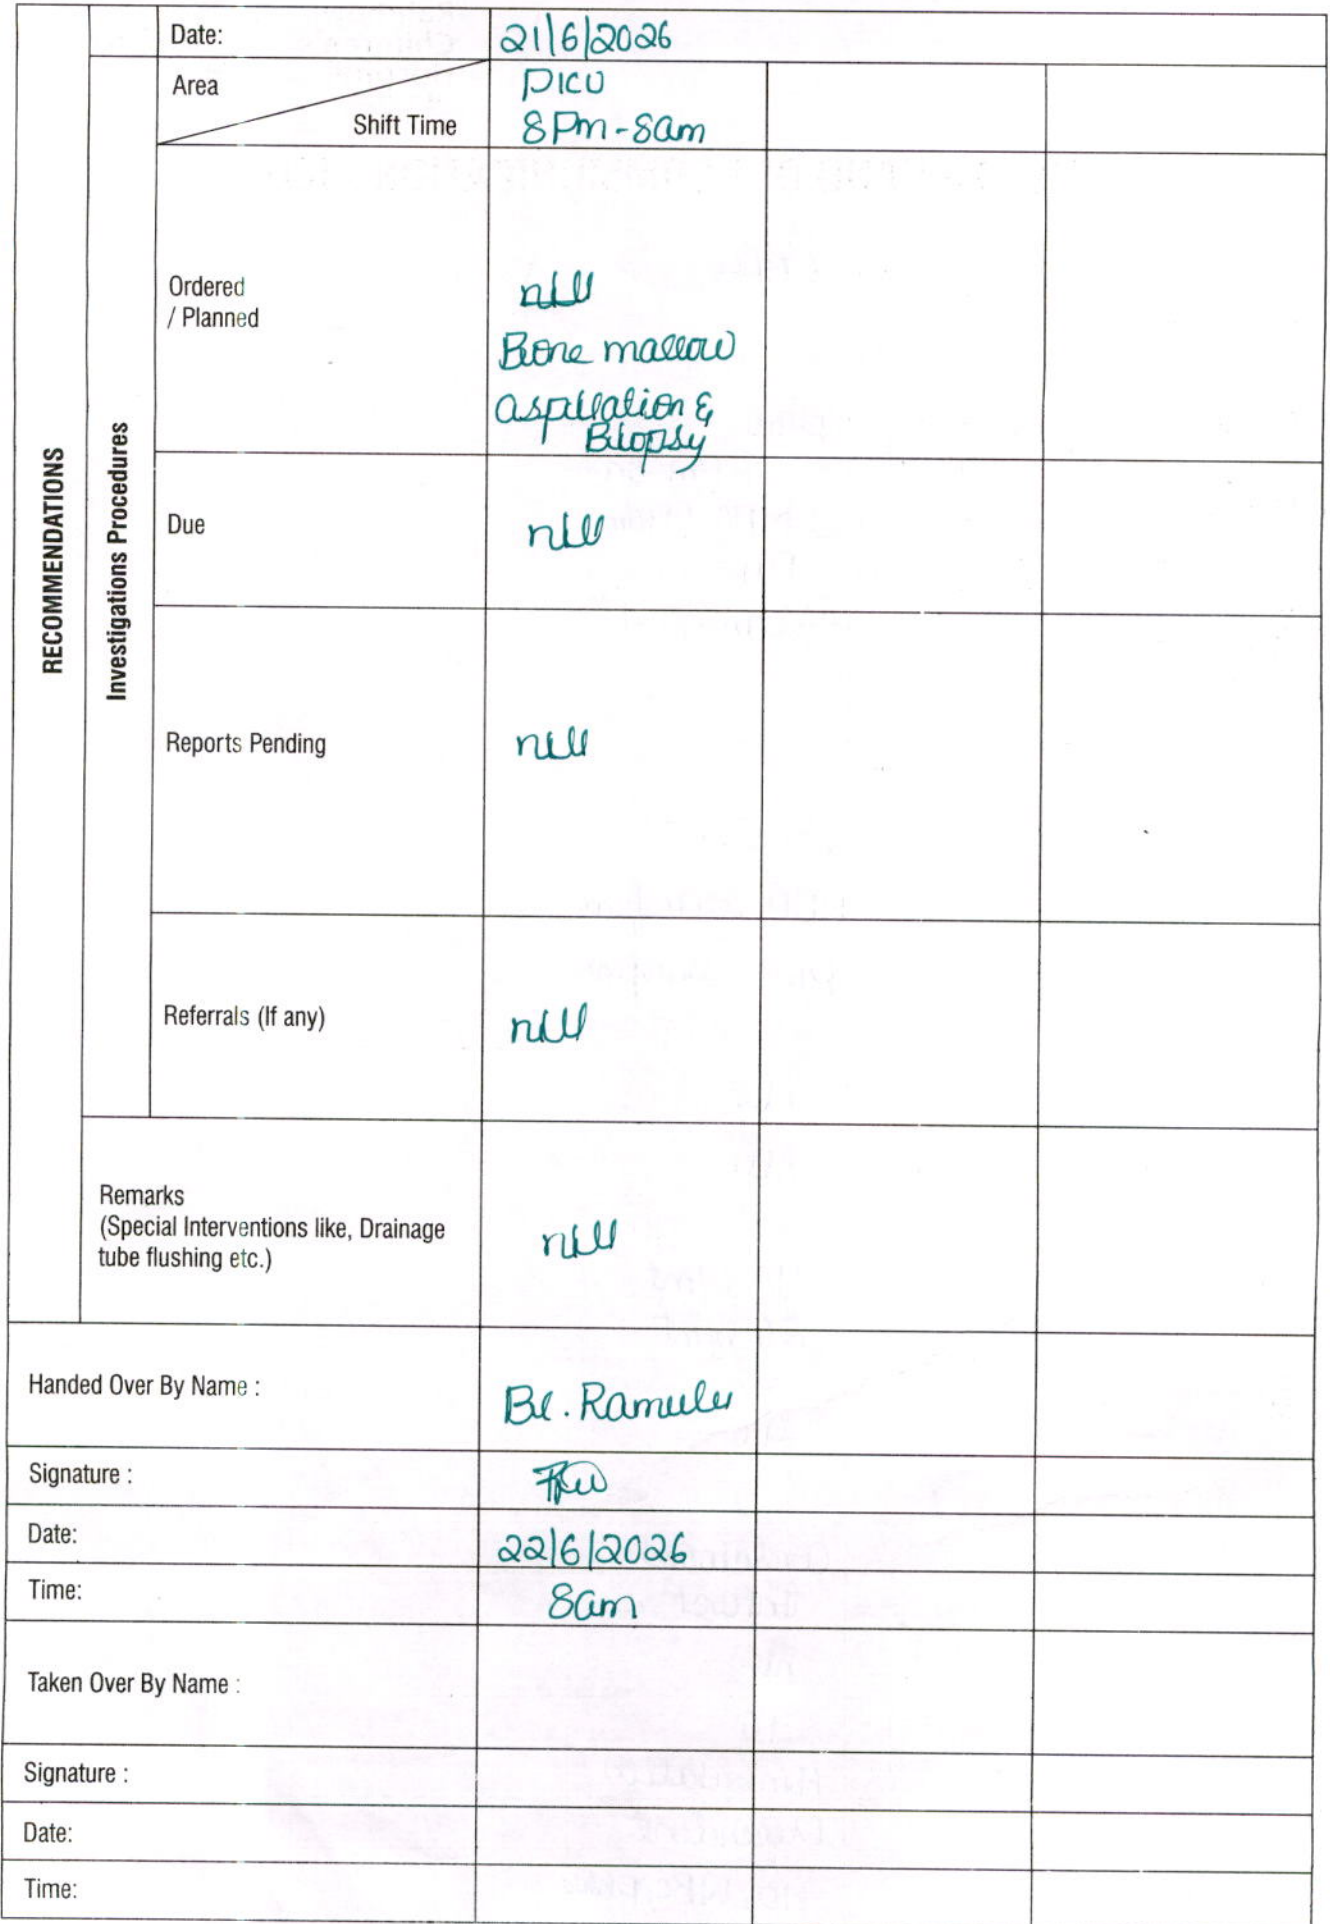 Date: 21/6/2026
Area PICU
Shift Time 8Pm-8am
RECOMMENDATIONS
Investigations Procedures
Ordered
/ Planned
nill
Bone marrow
aspiration &
Biopsy
Due nill
Reports Pending nill
Referrals (If any) nill
Remarks
(Special Interventions like, Drainage
tube flushing etc.)
nill
Handed Over By Name : Br. Ramulu
Signature :
Date: 22/6/2026
Time: 8am
Taken Over By Name :
Signature :
Date:
Time: